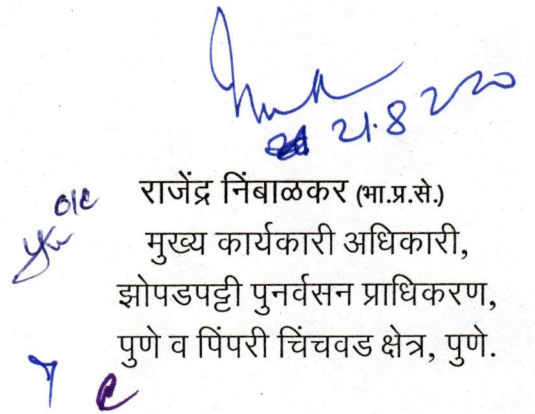 21.8.2020
o/c
राजेंद्र निंबाळकर (भा.प्र.से.)
मुख्य कार्यकारी अधिकारी,
झोपडपट्टी पुनर्वसन प्राधिकरण,
पुणे व पिंपरी चिंचवड क्षेत्र, पुणे.